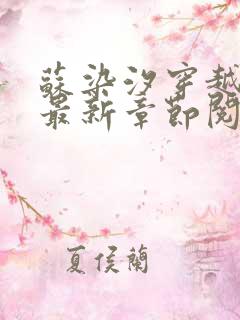 蘇染汐穿越
最新章節閱
夏侯蘭